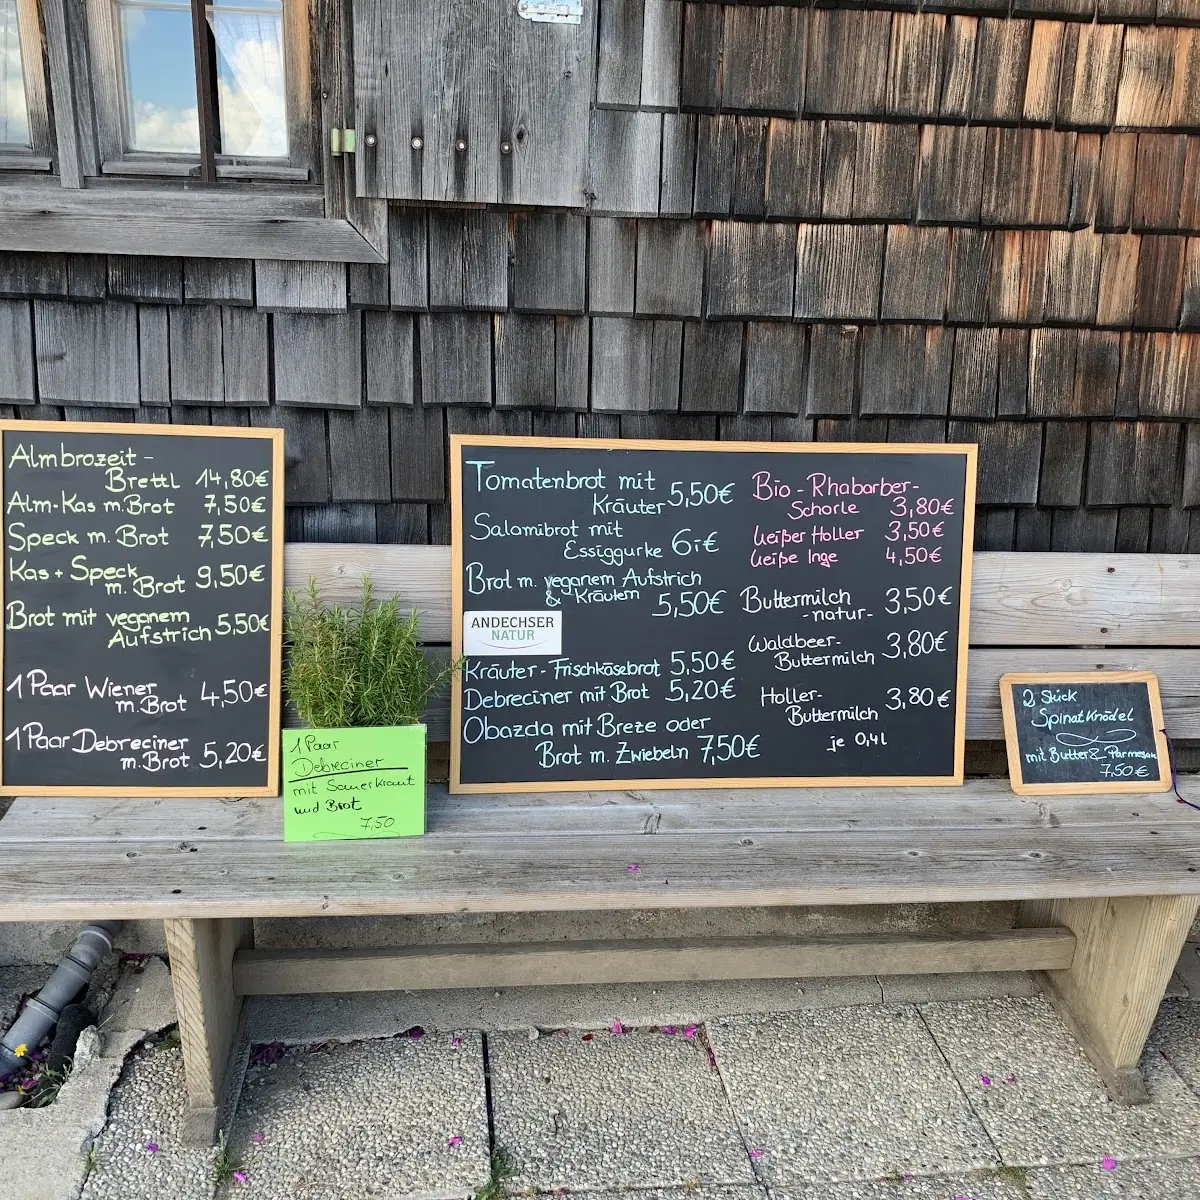 Almbrozeit -
Brettl 14,80€
Alm-Kas m. Brot 7,50€
Speck m. Brot 7,50€
Kas + Speck
m. Brot 9,50€
Brot mit veganem
Aufstrich 5,50€
1 Paar Wiener
m. Brot 4,50€
1 Paar Debreciner
m. Brot 5,20€
1 Paar
Debreciner
mit Sauerkraut
und Brot
7,50
Tomatenbrot mit
Kräuter 5,50€
Salamibrot mit
Essiggurke 6,-€
Brot m. veganem Aufstrich
& Kräutern 5,50€
ANDECHSER
NATUR
Kräuter - Frischkäsebrot 5,50€
Debreciner mit Brot 5,20€
Obazda mit Breze oder
Brot m. Zwiebeln 7,50€
Bio - Rhabarber-
Schorle 3,80€
Weißer Holler 3,50€
Weiße Inge 4,50€
Buttermilch
-natur- 3,50€
Waldbeer-
Buttermilch 3,80€
Holler-
Buttermilch 3,80€
je 0,4l
2 Stück
Spinatknödel
mit Butter & Parmesan
7,50€